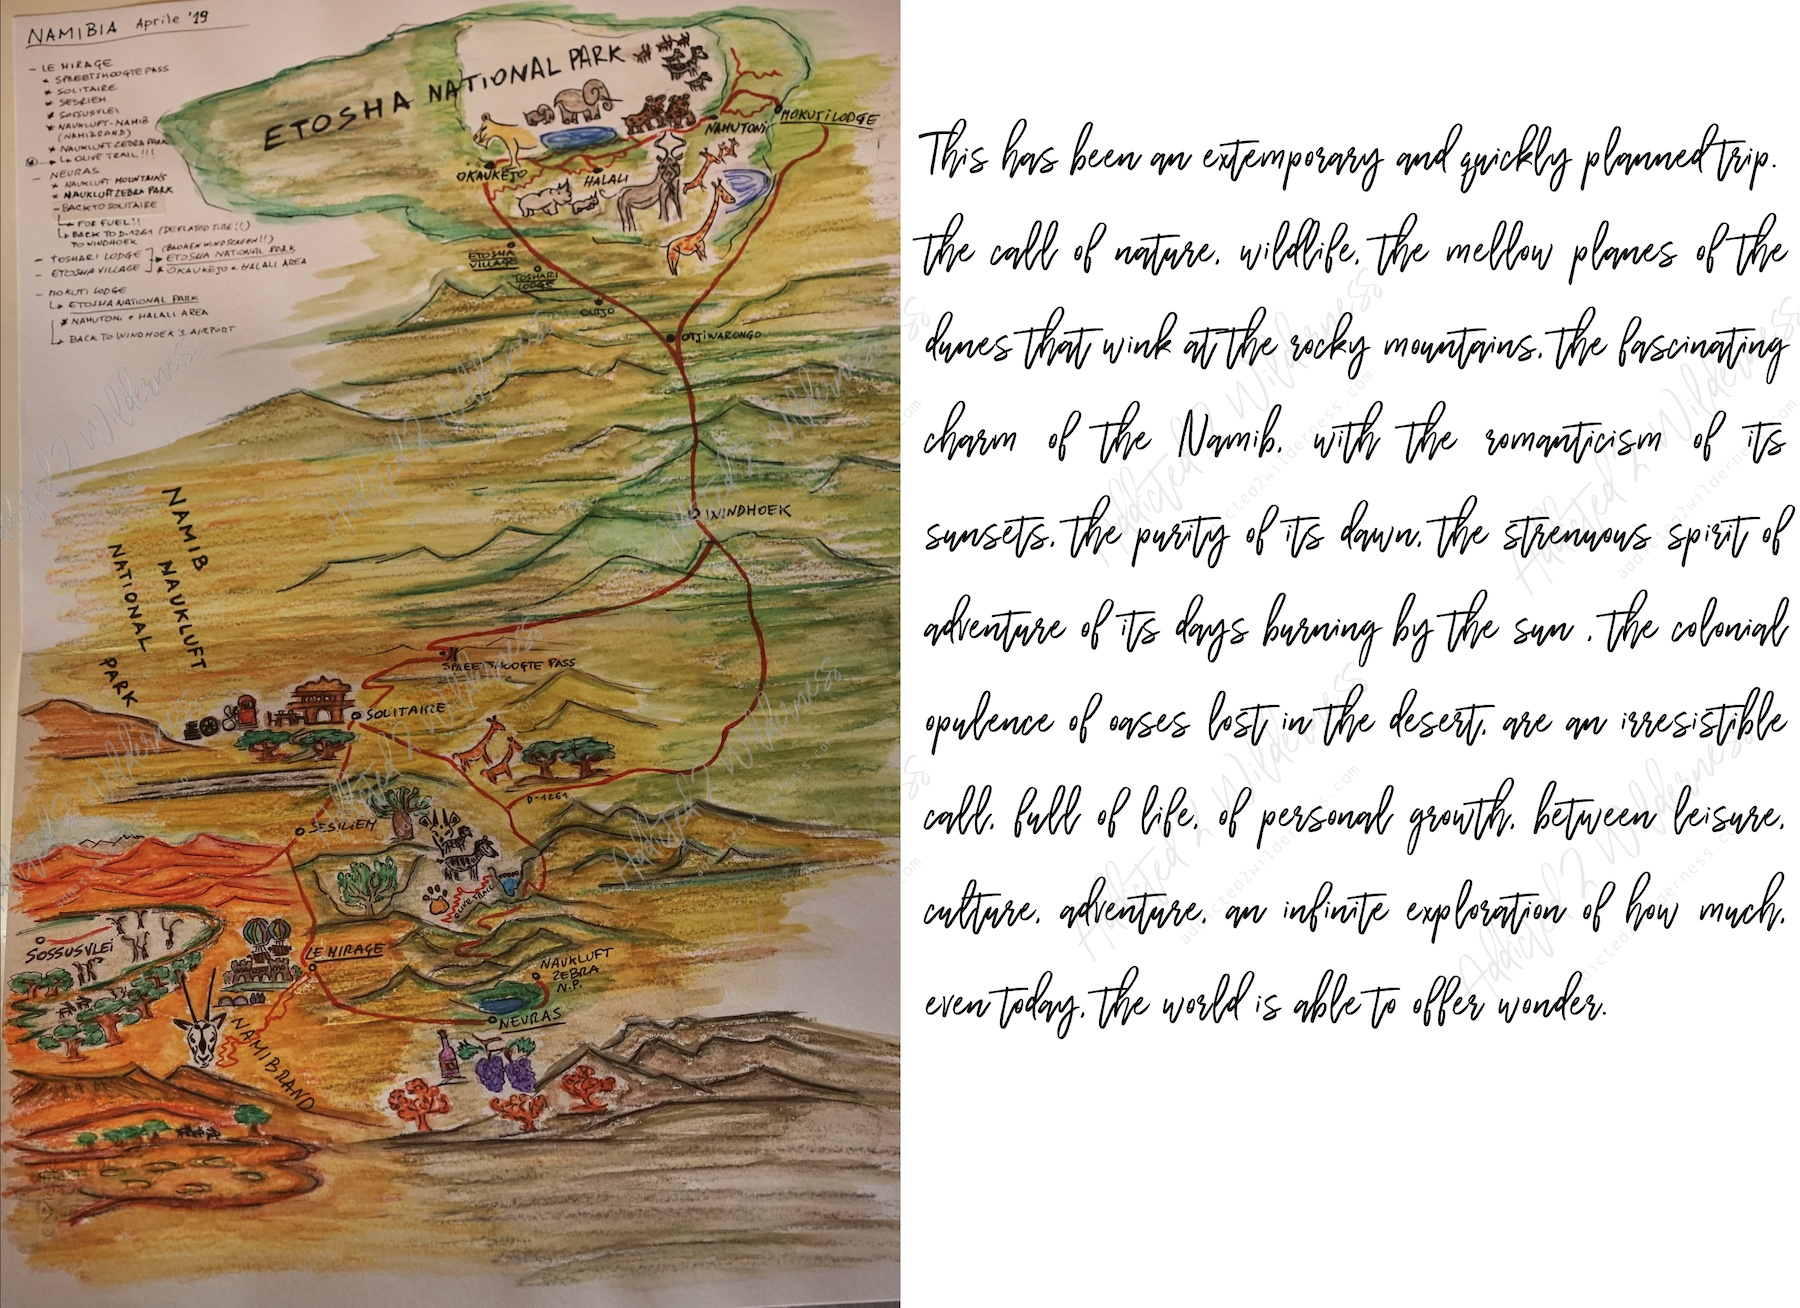 NAMIBIA Aprile '19
- LE MIRAGE
* SPREETSHOOGTE PASS
* SOLITAIRE
* SESRIEM
* SOSSUSVLEI
* NAUKLUFT-NAMIB
(NAMIBRAND)
* NAUKLUFT ZEBRA PARK
↳ OLIVE TRAIL!!!
- NEURAS
* NAUKLUFT MOUNTAINS
* NAUKLUFT ZEBRA PARK
- BACK TO SOLITAIRE
↳ FOR FUEL!!
↳ BACK TO D-1261 (DEFLATED TIRE!!)
TO WINDHOEK (BROKEN WINDSCREEN!!)
- TOSHARI LODGE ETOSHA NATIONAL PARK
- ETOSHA VILLAGE * OKAUKEJO + HALALI AREA
- MOKUTI LODGE
↳ ETOSHA NATIONAL PARK
* NAMUTONI + HALALI AREA
↳ BACK TO WINDHOEK'S AIRPORT
ETOSHA NATIONAL PARK
MOKUTI LODGE
NAMUTONI
OKAUKEJO
HALALI
ETOSHA
VILLAGE
TOSHARI
LODGE
OUTJO
OTJIWARONGO
WINDHOEK
NAMIB
NAUKLUFT
NATIONAL
PARK
SPREETSHOOGTE PASS
SOLITAIRE
D-1261
SESRIEM
OLIVE TRAIL
SOSSUSVLEI
LE MIRAGE
NAUKLUFT
ZEBRA
N.P.
NEURAS
NAMIBRAND
This has been an extemporary and quickly planned trip.
the call of nature, wildlife, the mellow planes of the
dunes that wink at the rocky mountains, the fascinating
charm of the Namib, with the romanticism of its
sunsets, the purity of its dawn, the strenuous spirit of
adventure of its days burning by the sun , the colonial
opulence of oases lost in the desert, are an irresistible
call, full of life, of personal growth, between leisure,
culture, adventure, an infinite exploration of how much,
even today, the world is able to offer wonder.
Addicted 2 Wilderness
addicted2wilderness.com